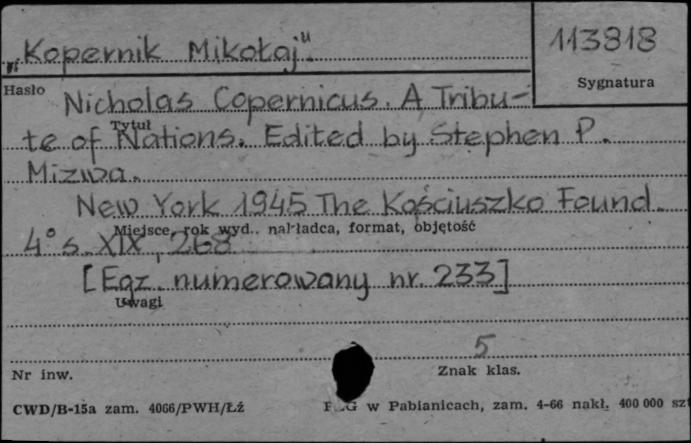 „Kopernik Mikołaj"
113818
Hasło
Sygnatura
Nicholas Copernicus. A Tribu-
Tytuł
te of Nations. Edited by Stephen P.
Mizwa.
New York 1945 The Kościuszko Found.
Miejsce, rok wyd., nakładca, format, objętość
4° s. XIX, 268
[Egz. numerowany nr. 233]
Uwagi
5
Nr inw.
Znak klas.
CWD/B-15a zam. 4066/PWH/Łź
w Pabianicach, zam. 4-66 nakł. 400 000 szt